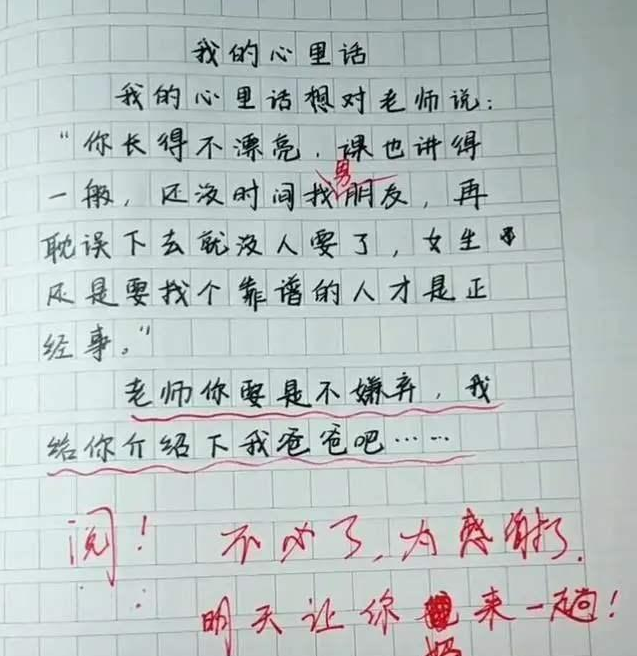 我的心里话
我的心里话想对老师说：
“你长得不漂亮，课也讲得
一般，还没时间找男朋友，再
耽误下去就没人要了，女生
还是要找个靠谱的人才是正
经事。”
老师你要是不嫌弃，我
给你介绍下我爸爸吧……
阅！ 不必了，太感谢了。
明天让你妈来一趟！